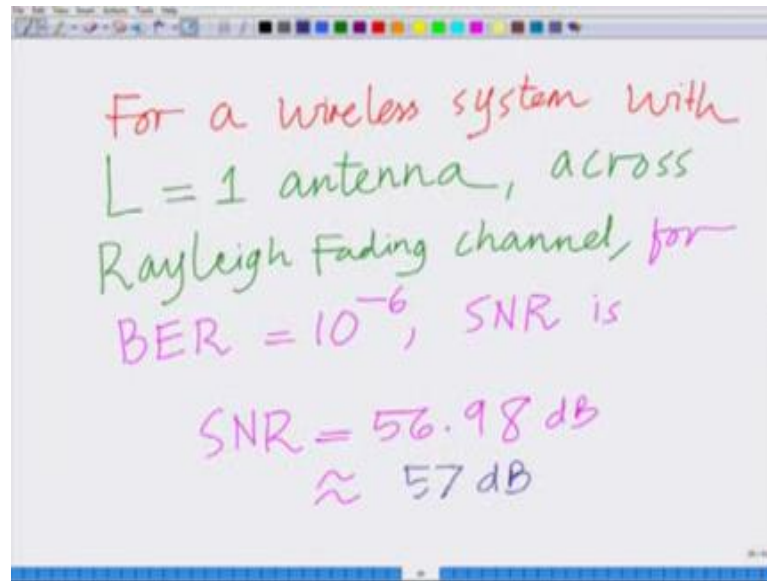 For a wireless system with
L = 1 antenna, across
Rayleigh Fading channel, for
BER = 10^{-6}, SNR is
SNR = 56.98 dB
≈ 57 dB